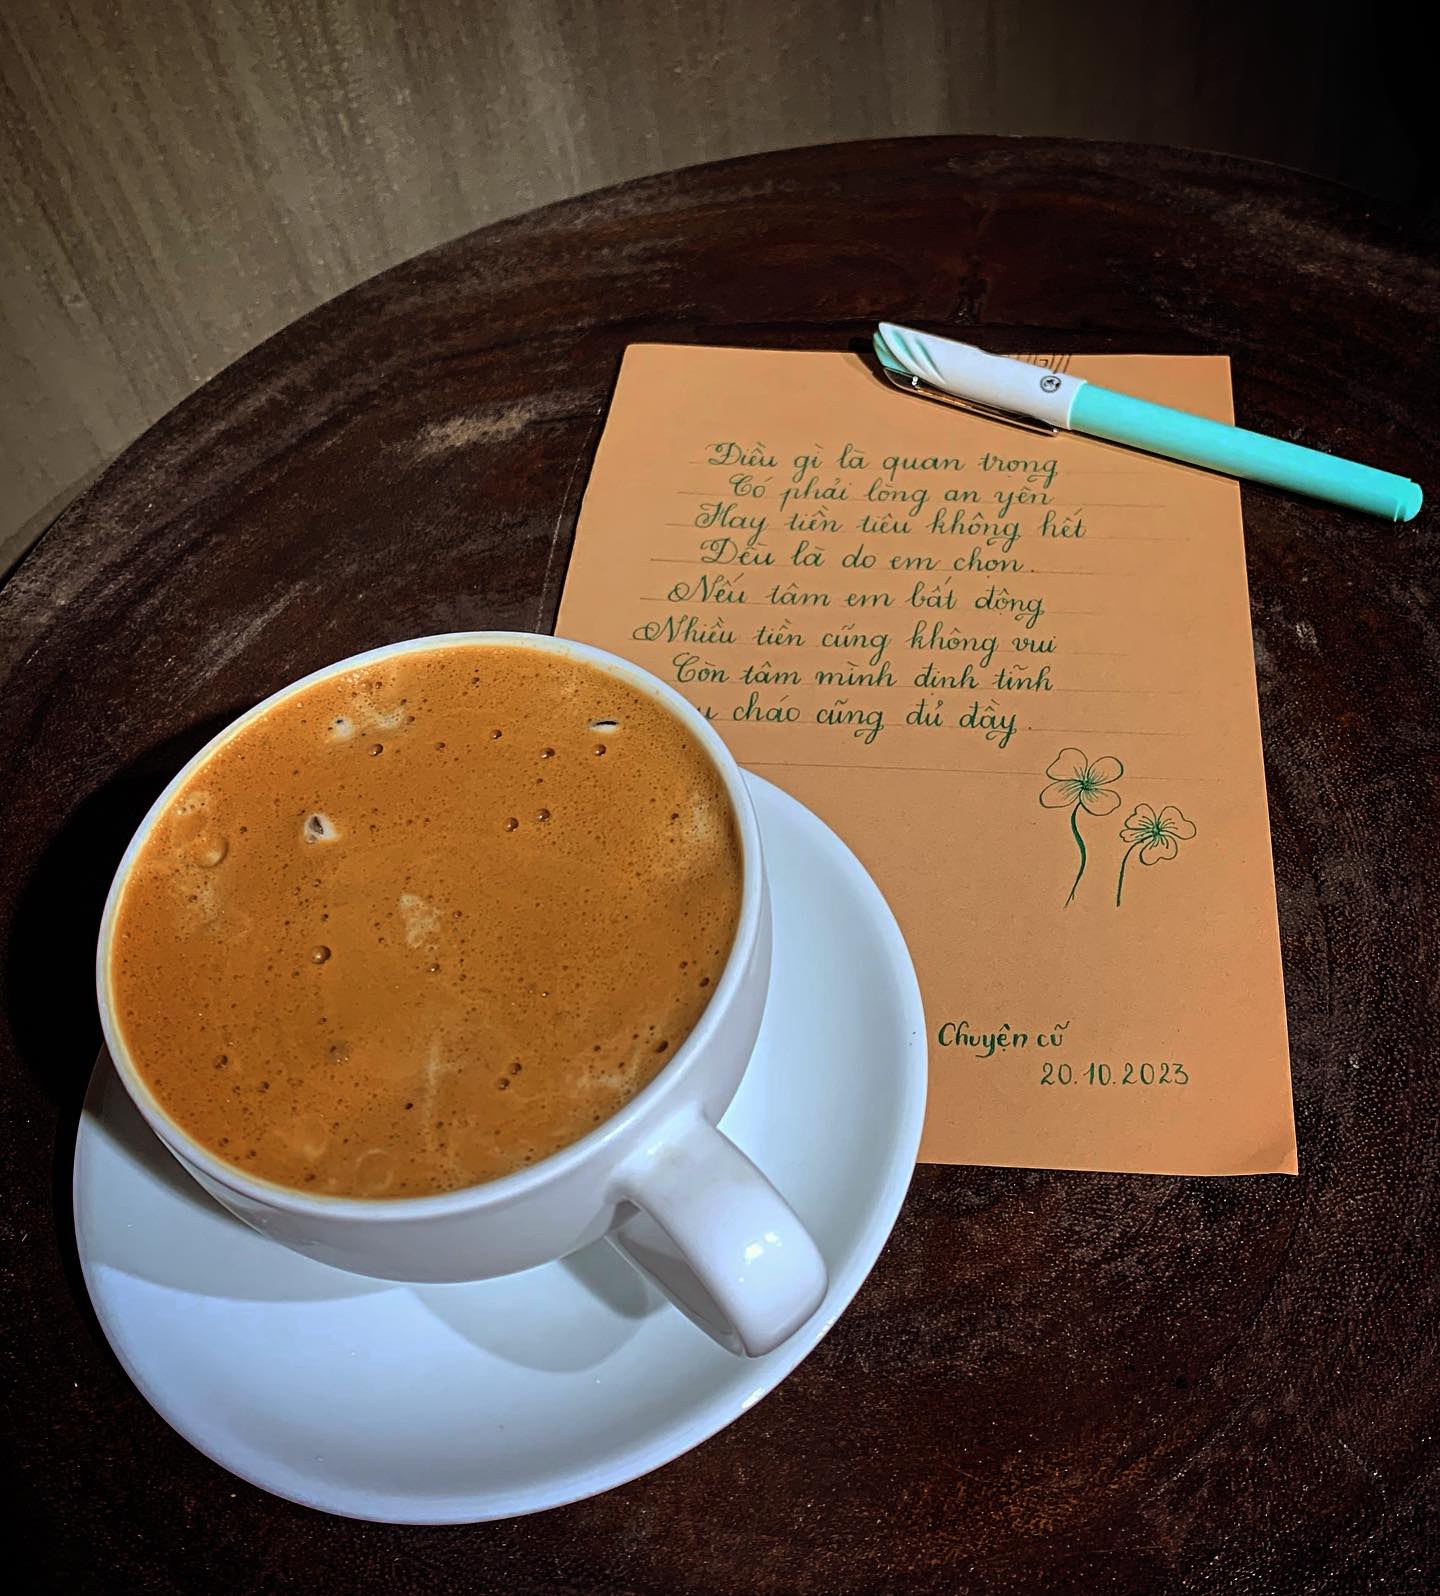 Điều gì là quan trọng
Có phải lòng an yên
Hay tiền tiêu không hết
Đều là do em chọn.
Nếu tâm em bất động
Nhiều tiền cũng không vui
Còn tâm mình định tĩnh
cháo cũng đủ đầy.
Chuyện cũ
20.10.2023